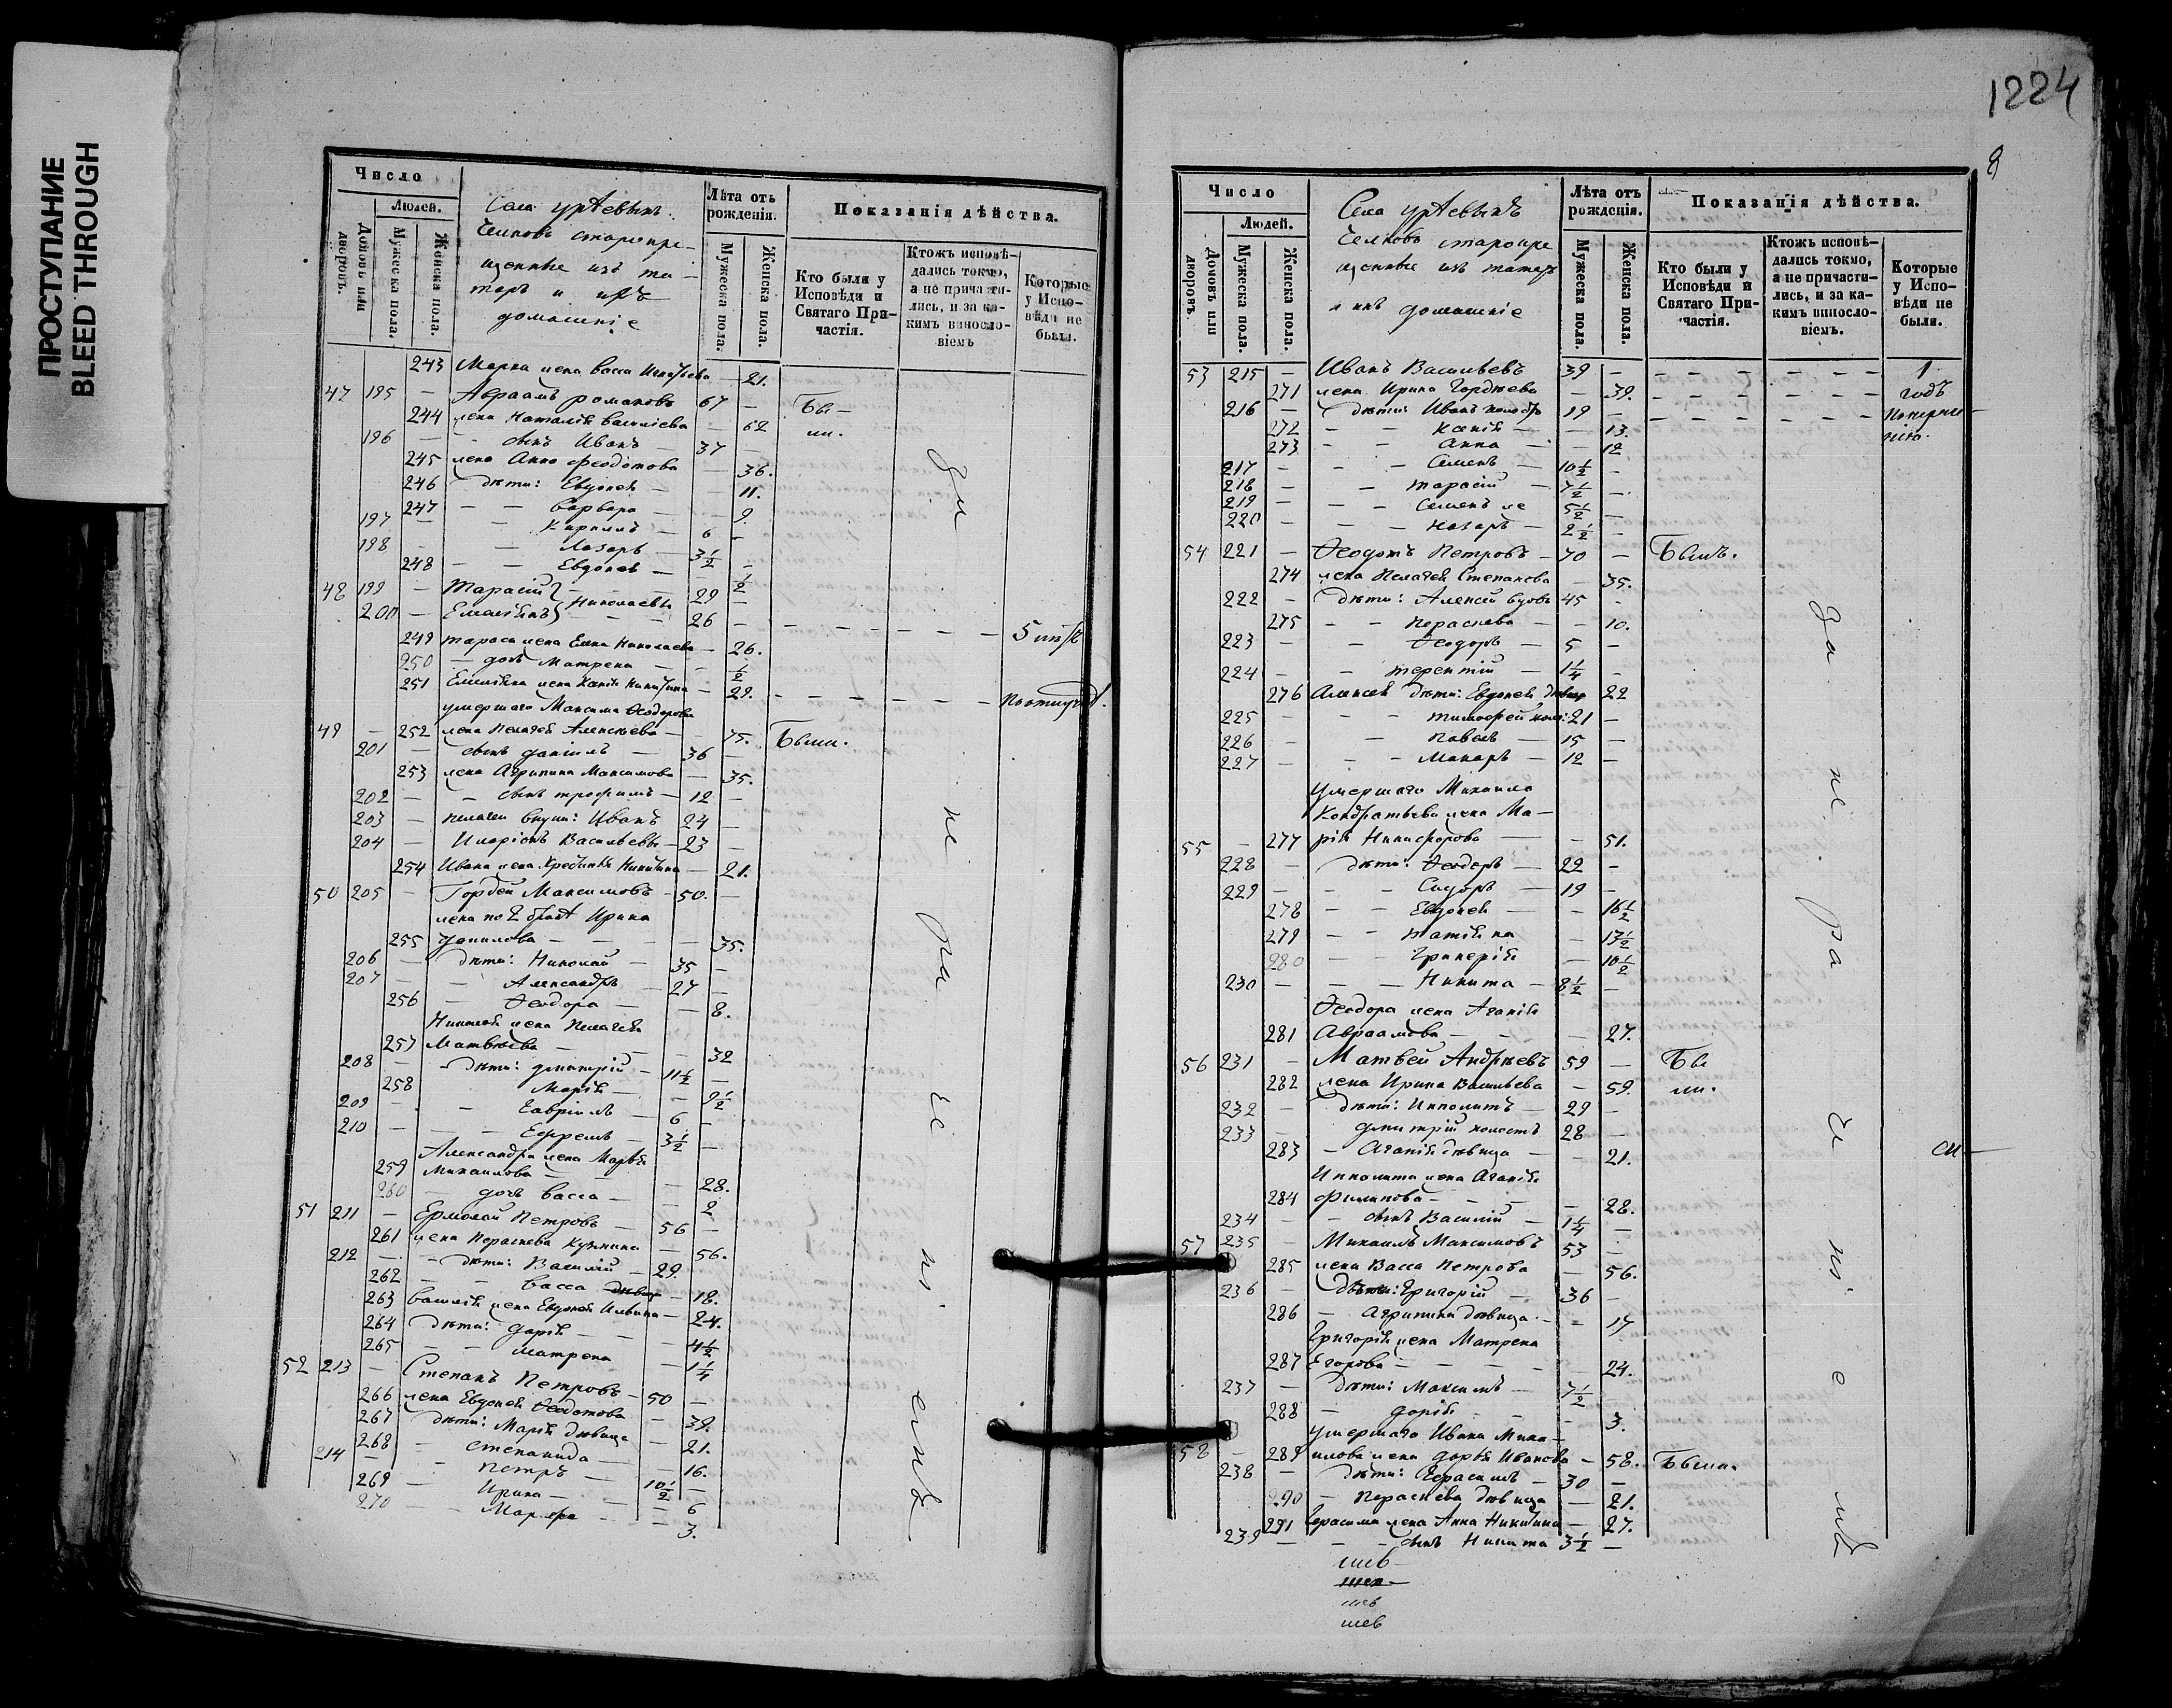 ПРОСТУПАНИЕ
BLEED THROUGH
Число
Людей.
Домовъ или дворовъ.
Мужеска пола.
Женска пола.
Села
Челновъ старокре-
щенные изъ та-
таръ и ихъ
домашніе
Лѣта отъ рожденія.
Мужеска пола.
Женска пола.
Показанія дѣйства.
Кто были у Исповѣди и Святаго Причастія.
Ктожъ исповѣдались токмо, а не причастились, и за какимъ винословіемъ
Которые у Исповѣди не были.
243 Марка жена Васса — 21.
47 195 — Авраамъ Романовъ 67 — Бы-
244 жена Наталія Василіева — 62 ли.
196 — сынъ Иванъ 37 —
245 жена Анна Феодотова — 36.
246 дѣти: Евдокія — 11.
247 — Варвара — 9.
197 — Кириллъ — 6 —
198 — Лазарь — 3½ —
248 — Евдокія — ½
48 199 — Тарасій 29 —
200 — Николаевы 26 —
249 Тараса жена Елена Николаева — 26.
250 — дочь Матрена — ½
251 жена Ксенія Никитина — 29.
умершаго Максима Ѳеодорова
49 — 252 жена Пелагея Алексѣева — 75. Были.
201 — сынъ Даніилъ — 36 —
253 жена Агрипина Максимова — 35.
202 — сынъ Трофимъ — 12 —
203 — Пелагеи внуки: Иванъ 24 —
204 — Иларіонъ Васильевы — 23 —
254 Ивана жена Никитина — 21.
50 205 — Гордей Максимовъ — 50. —
жена по 2 бракѣ Ирина
255 Данилова — 35.
206 — дѣти: Николай — 35 —
207 — Александръ — 27 —
256 — Ѳеодора — 8.
Николая жена Пелагея
257 Матвѣева — 32
208 — дѣти: Дмитрій — 11½ —
258 Марія — 9½
209 — Гавріилъ — 6 —
210 — Ефремъ — 3½ —
Александра жена Марѳа
259 Михаилова — 28.
260 — дочь Васса — 2
51 211 — Ермолай Петровъ — 56 —
261 жена Параскева Кузмина — 56.
212 — дѣти: Василій — 29.
262 — Васса дѣвица — 18.
263 Василія жена Евдокія Ильина — 24.
264 дѣти: Дарія — 4½
265 — Матрена — 1¼
52 213 — Степанъ Петровъ — 50 —
266 жена Евдокія Ѳеодотова — 39.
267 дѣти: Марія дѣвица — 21.
268 — Степанида — 16.
214 — Петръ — 10½ —
269 — Ирина — 6
270 — Марфа — 3.
за не ра че ні емъ
1224
8
Число
Людей.
Домовъ или дворовъ.
Мужеска пола.
Женска пола.
Села
Челновъ старокре
щенные изъ татаръ
и ихъ домашніе
Лѣта отъ рожденія.
Мужеска пола.
Женска пола.
Показанія дѣйства.
Кто были у Исповѣди и Святаго Причастія.
Ктожъ исповѣдались токмо, а не причастились, и за какимъ винословіемъ.
Которые у Исповѣди не были.
53 215 — Иванъ Васильевъ 39 — 1
271 жена Ирина Гордѣева — 39. годъ
216 — дѣти: Иванъ 19 —
272 — Ксенія — 13.
273 — Анна — 12
217 — Семенъ — 10½ —
218 — Тарасій — 7½ —
219 — Семенъ же 5½ —
220 — Назаръ — 2½ —
54 221 — Ѳеодотъ Петровъ — 70 — Былъ.
274 жена Пелагея Степанова — 35.
222 — дѣти: Алексей вдовъ 45 —
275 — Параскева — 10.
223 — Ѳеодоръ — 5 —
224 — Терентій — 1¼ —
276 Алексея дѣти: Евдокія дѣвица 22
225 — Тимофей 21 —
226 — Павелъ — 15 —
227 — Макаръ — 12 —
умершаго Михаила
Кондратьева жена Ма-
55 — 277 рія Никифорова — 51.
228 — дѣти: Ѳеодоръ — 22 —
229 — Сидоръ — 19 —
278 — Евдокія — 16½
279 — Татіяна — 13½
280 — Гликерія — 10½
230 — Никита — 8½ —
Ѳеодора жена Агапія
281 Авраамова — 27.
56 231 — Матвей Андреевъ 59 — Бы
282 жена Ирина Васильева — 59. ли.
232 — дѣти: Ипполитъ — 29 —
233 — Дмитрій холостъ 28 —
283 — Агапія дѣвица — 21.
Ипполита жена Агапія
284 Филипова — 28.
234 — сынъ Василій — 1¼ —
57 235 — Михаилъ Максимовъ 53 —
285 жена Васса Петрова — 56.
236 — дѣти: Григорій — 36 —
286 — Агрипина дѣвица — 17
Григорія жена Матрена
287 Егорова — 24.
237 — дѣти: Максимъ — 7½ —
288 — Дарія — 3.
умершаго Ивана Миха-
58 — 289 илова жена Дарья Иванова — 58. Были.
238 — дѣти: Герасимъ — 30 —
290 — Параскева дѣвица — 21.
291 Герасима жена Анна Никитина — 27.
239 — сынъ Никита 3½ —
за не ра че ні емъ